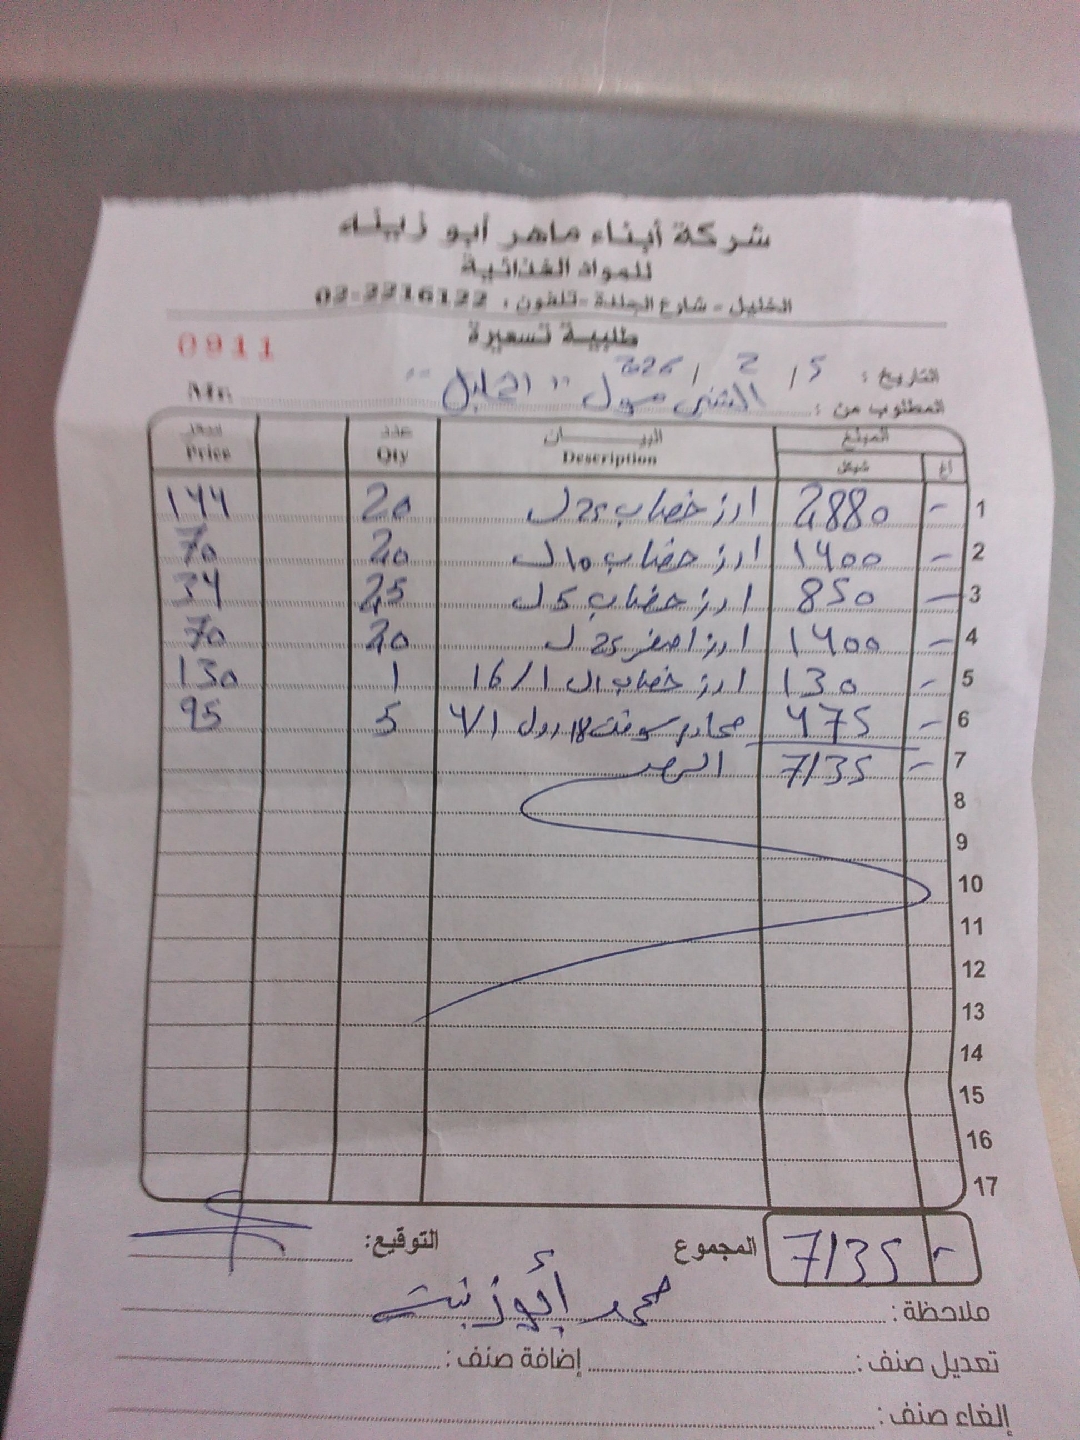 شركة أبناء ماهر أبو زينه
للمواد الغذائية
الخليل - شارع الجلدة - تلفون : 02-2216122
طلبية تسعيرة
0911
التاريخ : 5 / 2 / 2026
المطلوب من : الشني مول "الخليل" Mr.
المبلغ البيــــــان عدد السعر
اغ شيكل Description Qty Price
1 - 2880 ارز خضاب 25 ل 20 144
2 - 1400 ارز خضاب 10 ل 20 70
3 - 850 ارز خضاب 5 ل 25 34
4 - 1400 ارز اصفر 25 ل 20 70
5 - 130 ارز خضاب 1 ل 16/1 1 130
6 - 475 محارم سوفت 18 رول 4/1 5 95
7 - 7135
8
9
10
11
12
13
14
15
16
17
- 7135 المجموع التوقيع:
محمد أبو زينة
ملاحظة :
تعديل صنف : إضافة صنف :
إلغاء صنف :